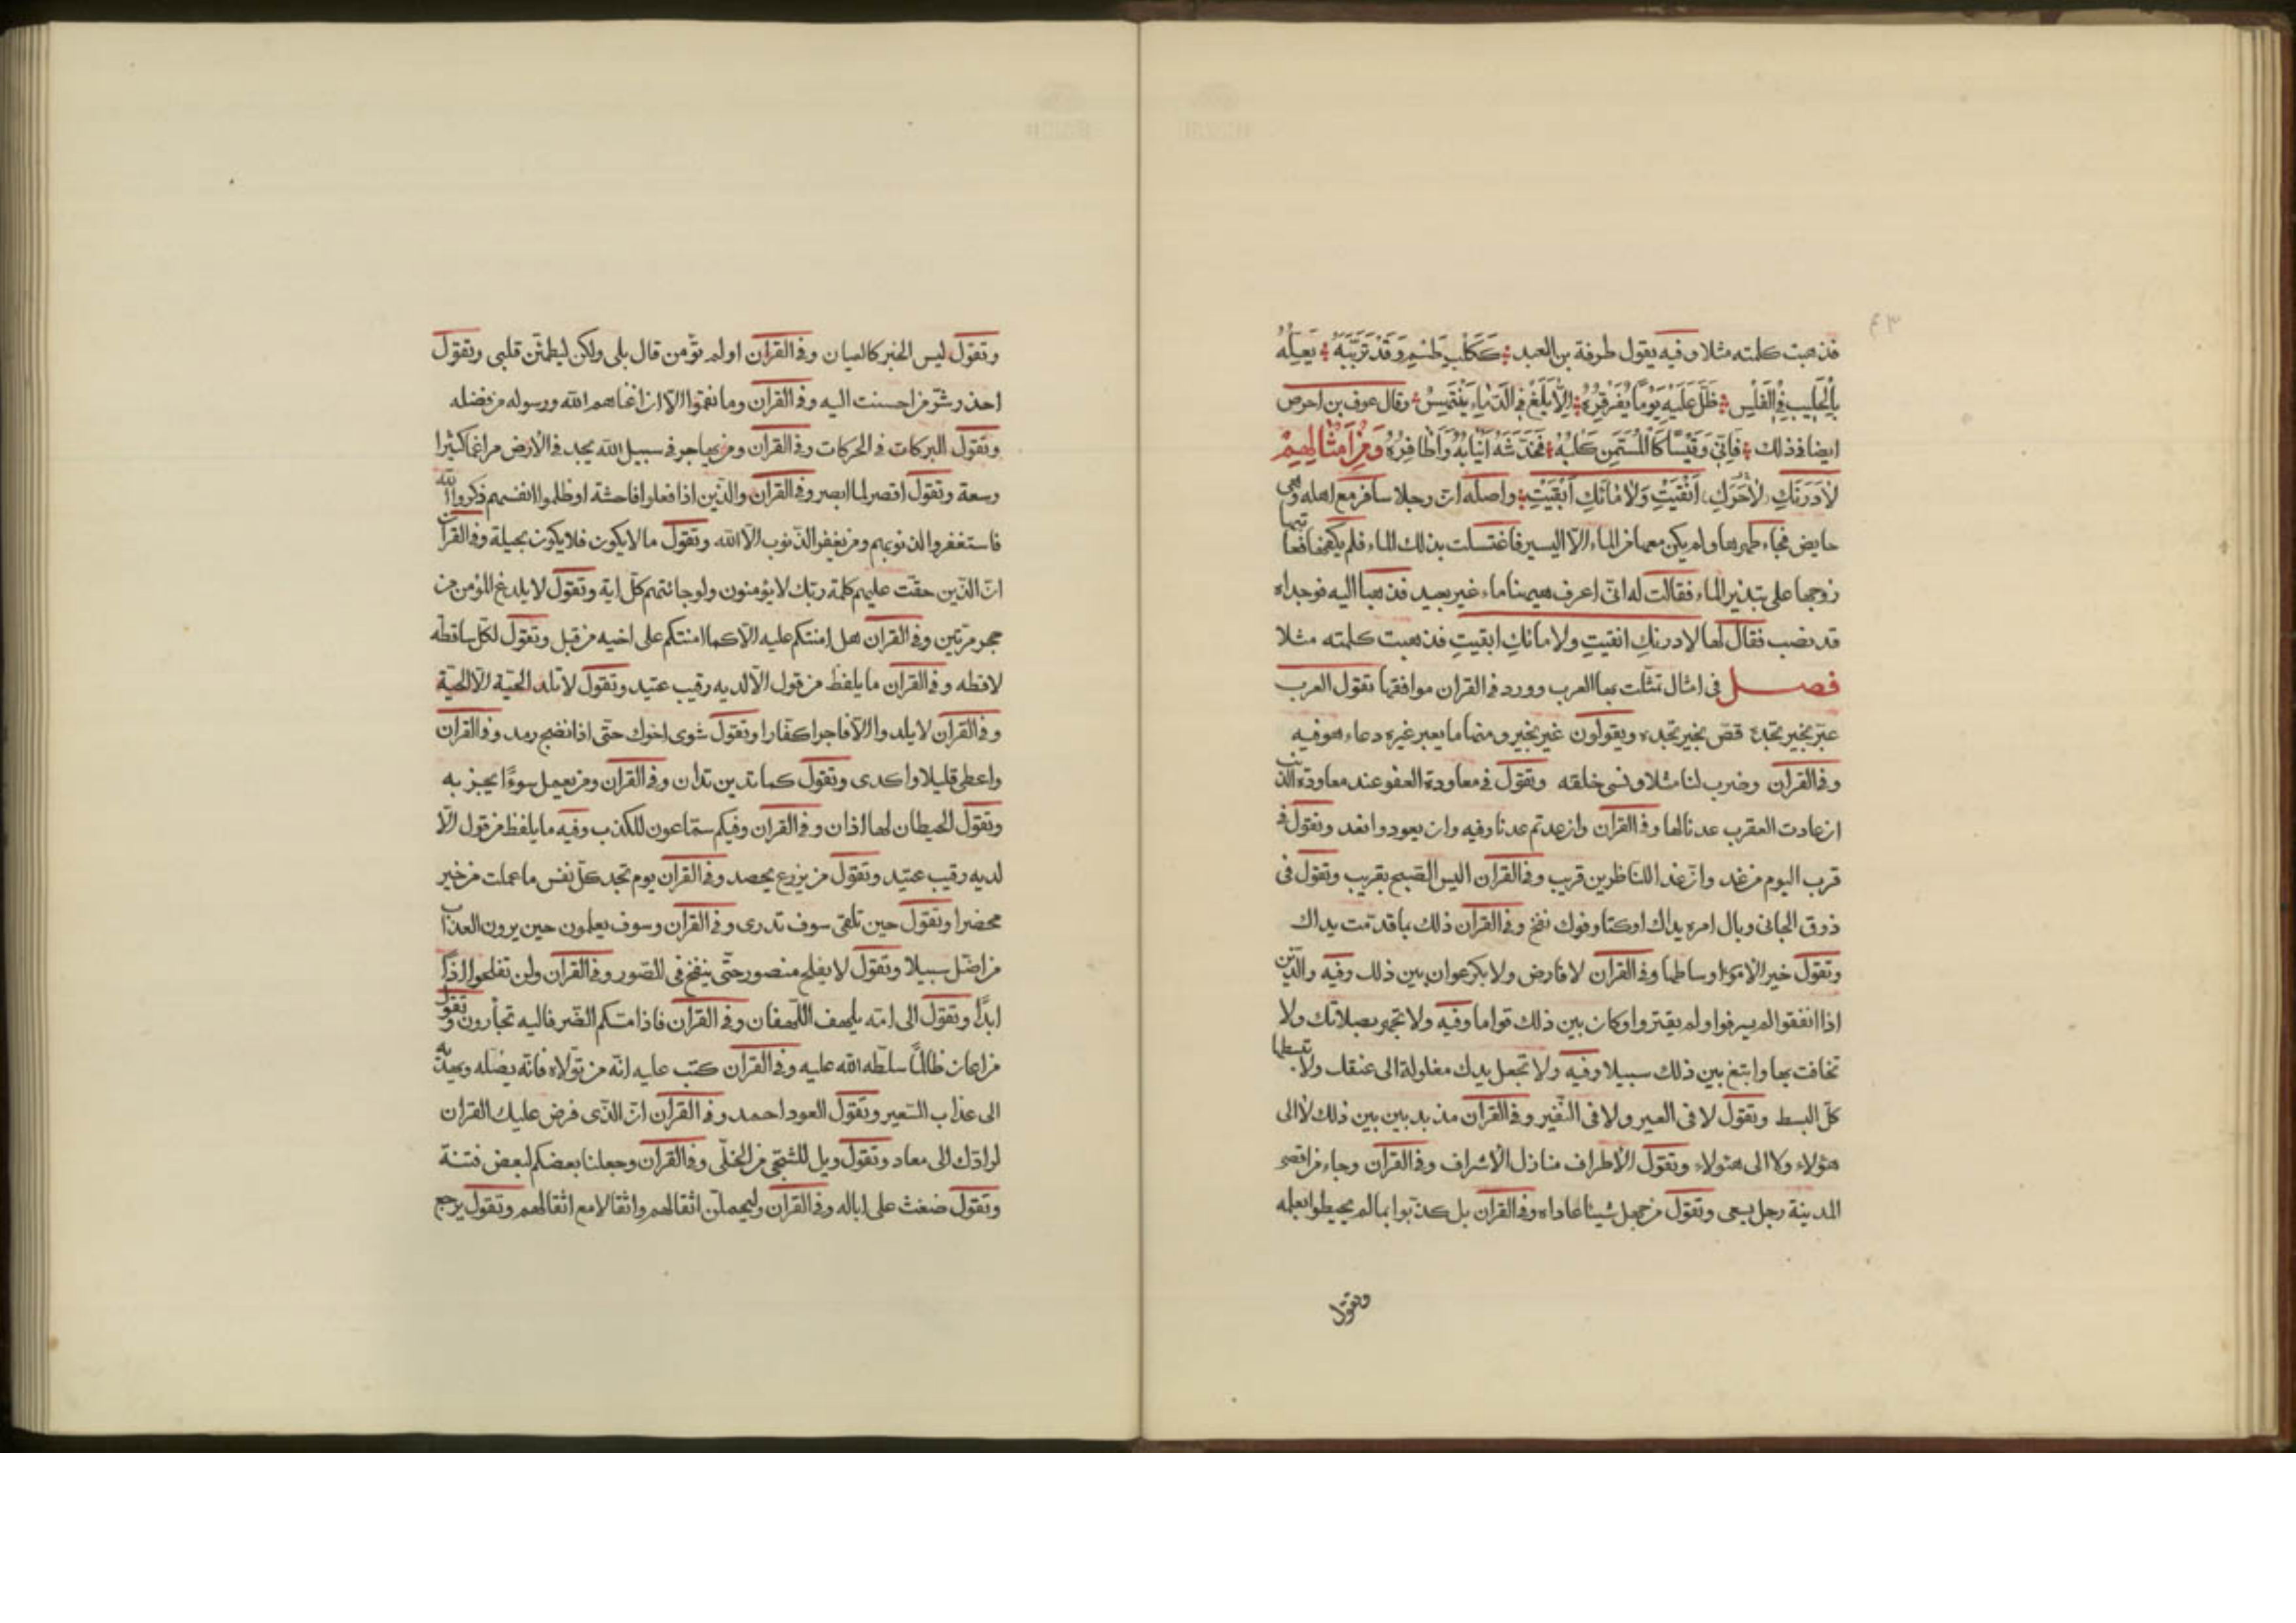 ٤٣
فذهبت كلمته مثلا وفيه يقول طرفة بن العبد كَكَلْبِ طَسْمٍ وَقَدْ تَرَبَّبَهُ يَعِلُّهُ
بِالْحَلِيبِ فِي الْغَلَسِ ظَلَّ عَلَيْهِ يَوْمًا يُفَرْفِرُهُ اِلَّا يَلَغْ فِي الدِّمَاءِ يَنْتَهِسْ وقال عوف بن احوص
ايضا فى ذلك فَاِنِّي وَقَيْسًا كَالْمُسَمِّنِ كَلْبَهُ فَخَدَّشَهُ اَنْيَابُهُ وَاَظَافِرُهُ وَمِنْ اَمْثَالِهِمْ
لَادَرَنَكِ اَنْقَيْتِ وَلَامَائَكِ اَبْقَيْتِ واصله انّ رجلا سافر مع اهله وهى
حايض فجاء طهرها ولم يكن معها من الماء الّا اليسير فاغتسلت بذلك الماء فلم يكفها
زوجها على تبذير الماء فقالت له انى اعرف هيهنا ماء غير بعيد فذهبا اليه فوجداه
قد نضب فقال لها لادرنكِ انقيتِ ولا مائكِ ابقيتِ فذهبت كلمته مثلا
فصل فى امثال تمثّلت بها العرب وورد فى القران موافقها تقول العرب
ويقولون ومنها ما يعير غيره دعاء هو فيه
وفى القران وضرب لنا مثلا ونسى خلقه وتقول فى معاودة العفو عند معاودة الذنب
ان عادت العقرب عدنا لها وفى القران وان عدتم عدنا وفيه وان يعودوا نعد وتقول فى
قرب اليوم من غد وانّ غدا للناظرين قريب وفى القران اليس الصّبح بقريب وتقول فى
ذوق الجانى وبال امره يداك اوكتا وفوك نفخ وفى القران ذلك بما قدّمت يداك
وتقول خير الامور اوساطها وفى القران لا فارض ولا بكر عوان بين ذلك وفيه والّذين
اذا انفقوا لم يسرفوا ولم يقتروا وكان بين ذلك قواما وفيه ولا تجهر بصلاتك ولا
تخافت بها وابتغ بين ذلك سبيلا وفيه ولا تجعل يدك مغلولة الى عنقك ولا تبسطها
كلّ البسط وتقول لا فى العير ولا فى النّفير وفى القران مذبذبين بين ذلك لا الى
هؤلاء ولا الى هؤلاء وتقول الاطراف منازل الاشراف وفى القران وجاء من اقصى
المدينة رجل يسعى وتقول من جهل شيئا عاداه وفى القران بل كذّبوا بما لم يحيطوا بعلمه
وتقول
وتقول ليس الخبر كالعيان وفى القران اولم تؤمن قال بلى ولكن ليطمئن قلبى وتقول
احذر شرّ من احسنت اليه وفى القران وما نقموا الّا ان اغناهم الله ورسوله من فضله
وتقول البركات فى الحركات وفى القران ومن يهاجر فى سبيل الله يجد فى الارض مراغما كثيرا
وسعة وتقول اقصر لما ابصر وفى القران والّذين اذا فعلوا فاحشة او ظلموا انفسهم ذكروا الله
فاستغفروا لذنوبهم ومن يغفر الذّنوب الّا الله وتقول ما لا يكون فلا يكون بحيلة وفى القران
انّ الّذين حقّت عليهم كلمة ربّك لا يؤمنون ولو جائتهم كلّ اية وتقول لا يلدغ المؤمن من
حجر مرّتين وفى القران هل امنتكم عليه الّا كما امنتكم على اخيه من قبل وتقول لكلّ ساقطة
لاقطه وفى القران ما يلفظ من قول الّا لديه رقيب عتيد وتقول لا تلد الحيّة الّا الحيّة
وفى القران لا يلدوا الّا فاجرا كفّارا وتقول شوى اخوك حتّى اذا نضج رمد وفى القران
واعطى قليلا واكدى وتقول كما تدين تدان وفى القران ومن يعمل سوءًا يجز به
وتقول للحيطان لها اذان وفى القران وفيكم سمّاعون للكذب وفيه ما يلفظ من قول الّا
لديه رقيب عتيد وتقول من يزرع يحصد وفى القران يوم تجد كلّ نفس ما عملت من خير
محضرا وتقول حين تلقى سوف تدرى وفى القران وسوف يعلمون حين يرون العذاب
من اضلّ سبيلا وتقول لا يفلح منصور حتّى ينفخ فى الصّور وفى القران ولن تفلحوا اذًا
ابدًا وتقول الى امّه يلهف اللّهفان وفى القران فاذا مسّكم الضّر فاليه تجأرون وتقول
من اعان ظالمًا سلّطه الله عليه وفى القران كتب عليه انّه من تولّاه فانّه يضلّه ويهديه
الى عذاب السّعير وتقول العود احمد وفى القران انّ الذّى فرض عليك القران
لرادّك الى معاد وتقول ويل للشّجى من الخلّى وفى القران وجعلنا بعضكم لبعض فتنة
وتقول ضغث على اباله وفى القران وليحملنّ اثقالهم واثقالا مع اثقالهم وتقول يرجع